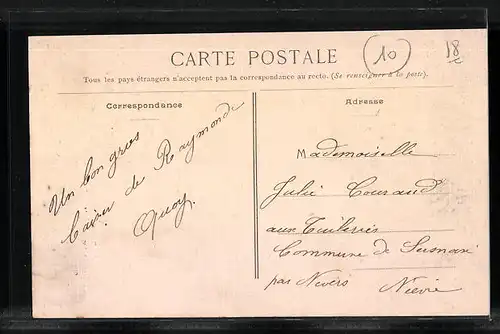 CARTE POSTALE
10
18
Tous les pays étrangers n'acceptent pas la correspondance au recto. (Se renseigner à la poste).
Correspondance
Un bon gros
baiser de Raymonde
Quoy.
Adresse
Mademoiselle
Julie Couraud
aux Tuileries
Commune de
par Nevers
Nièvre